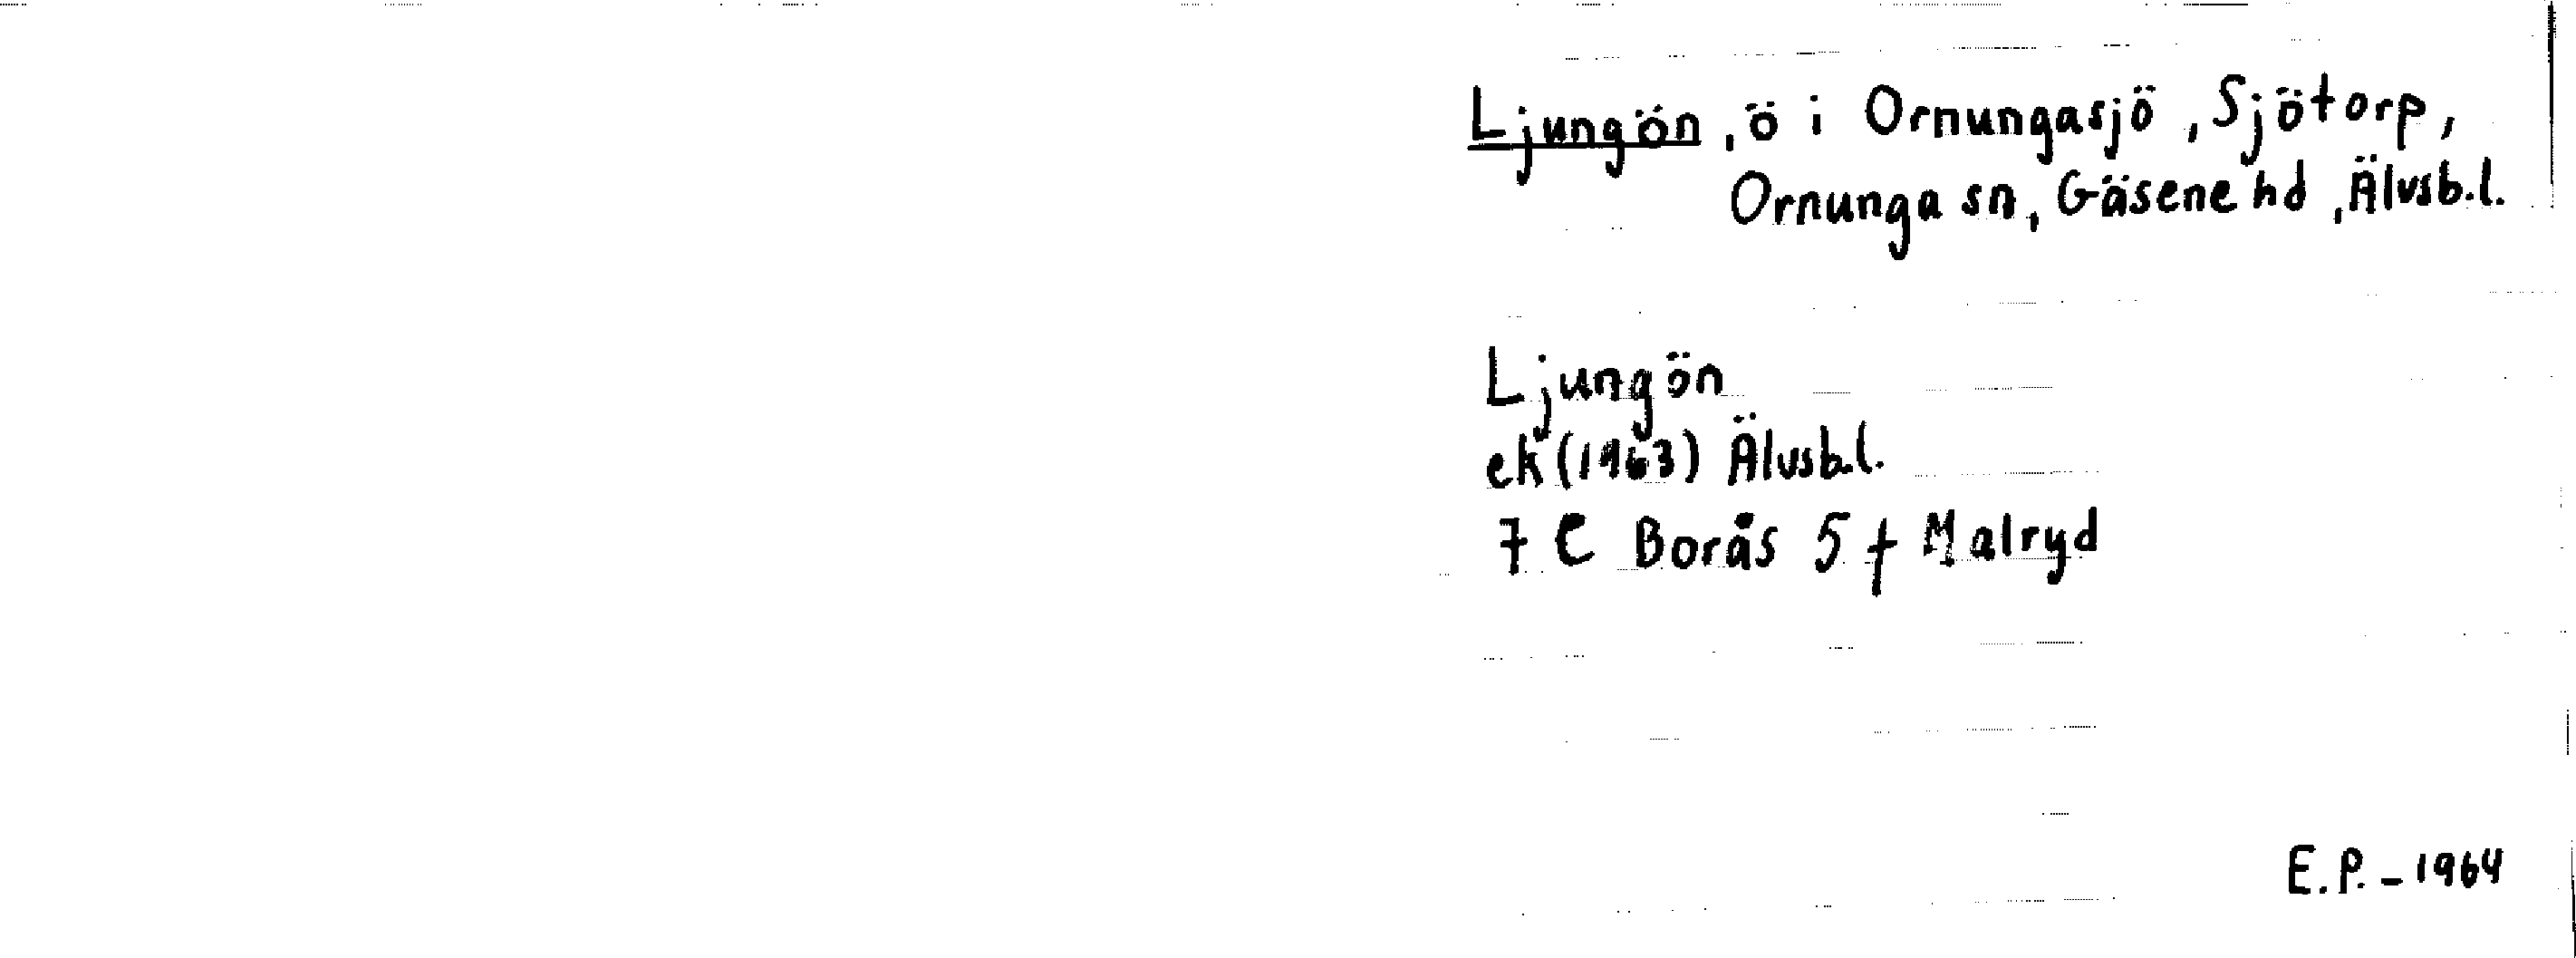 Ljungön, ö i Ornungasjö, Sjötorp,
Ornunga sn, Gäsene hd, Älvsb.l.
Ljungön
ek (1963) Älvsb.l.
7 C Borås 5 f Malryd
E.P. - 1964